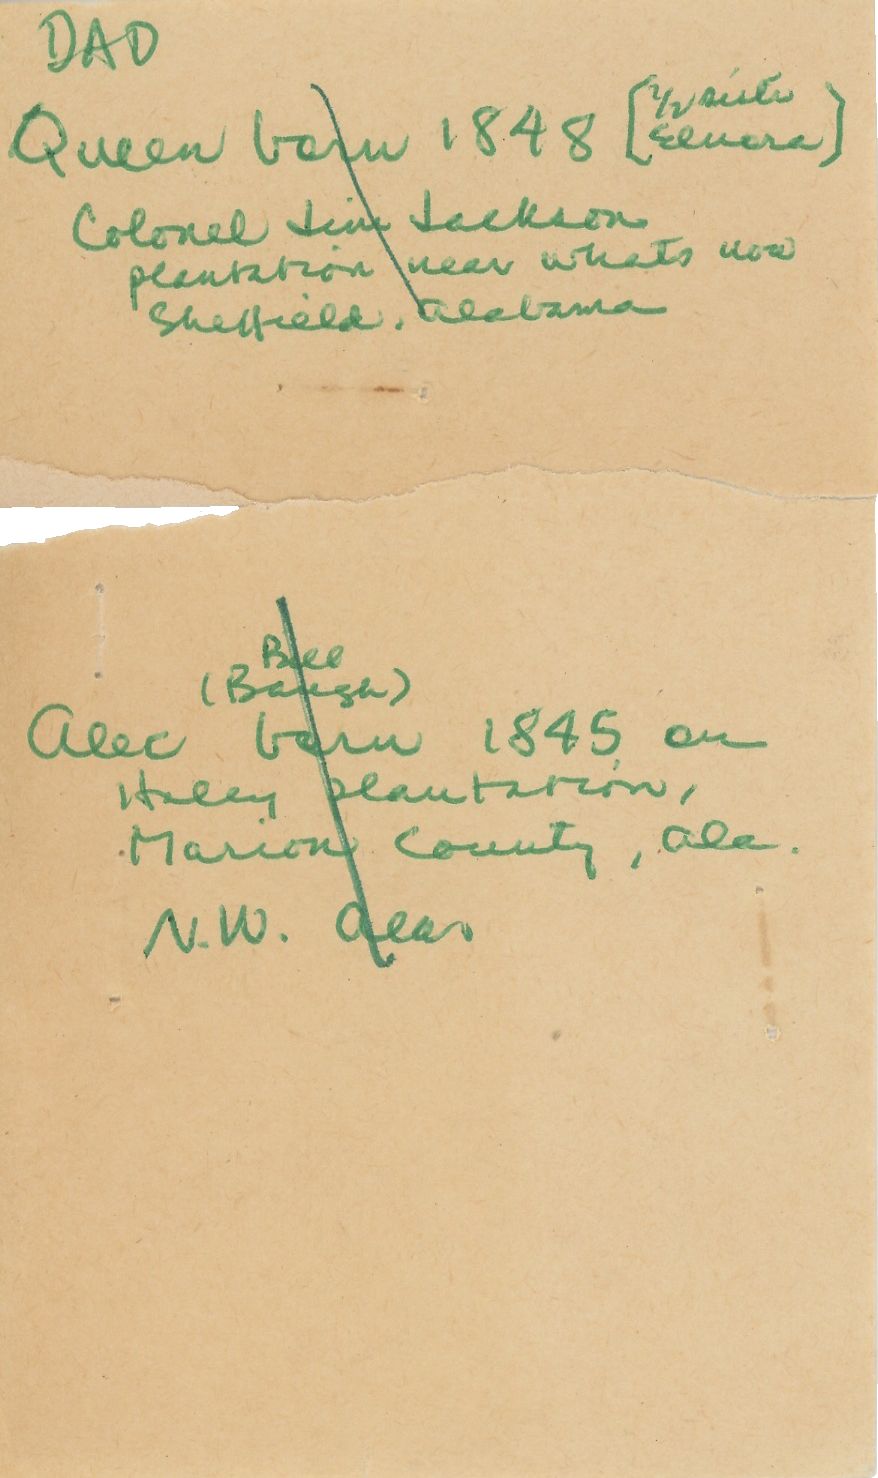 DAD
Queen born 1848 [1/2 sister
Elnora]
Colonel Jim Jackson
plantation near whats now
Sheffield, Alabama
Bill
(Baugh)
Alec born 1845 on
Haley plantation,
Marion County, Ala.
N.W. Ala.